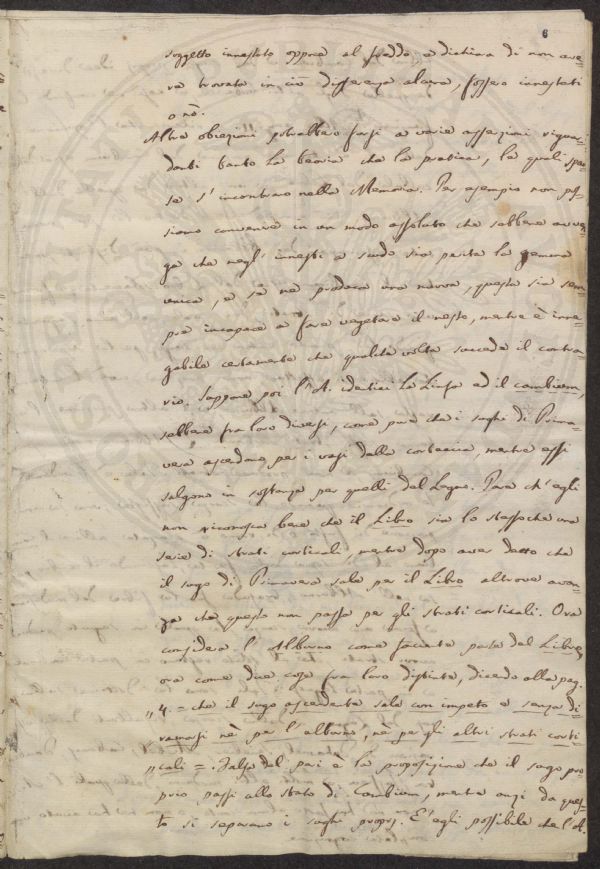 6
soggetto innestato oppure al freddo, e dichiara di non ave=
re trovata in ciò differenza alcuna, fossero innestati
o nò.
Altre obiezioni potrebbero farsi a varie asserzioni riguar=
danti tanto la teoria che la pratica, le quali spar=
se s'incontrano nella Memoria. Per esempio non pos=
siamo convenire in un modo assoluto che sebbene avven=
ga che negl'innesti a scudo sia perita la gemma
unica, e se ne produca una nuova, questa sia sem=
pre incapace a fare vegetare il nesto, mentre è inne=
gabile certamente che qualche volta succede il contra=
rio. Suppone poi l'A. identici la Linfa ed il cambium,
sebbene fra loro diversi, come pure che i sughi di Prima=
vera ascendano per i vasi della corteccia, mentre essi
salgono in sostanza per quelli del Legno. Pare ch'egli
non riconosca bene che il Libro sia lo stesso che una
serie di strati corticali, mentre dopo aver detto che
il sugo di Primavera sale per il Libro altrove avan=
za che questo non passa per gli strati corticali. Ora
considera l'Alburno come facente parte del Libro,
ora come due cose fra loro distinte, dicendo alla pag.
„ 4. = che il sugo ascendente sale con impeto e senza di=
„ ramarsi nè per l'alburno, nè per gli altri strati corti=
„ cali =. Falsa del pari è la proposizione che il sugo pro=
prio passi allo stato di Cambium, mentre anzi da ques=
to si separano i sughi proprj. E' egli possibile che l'A.